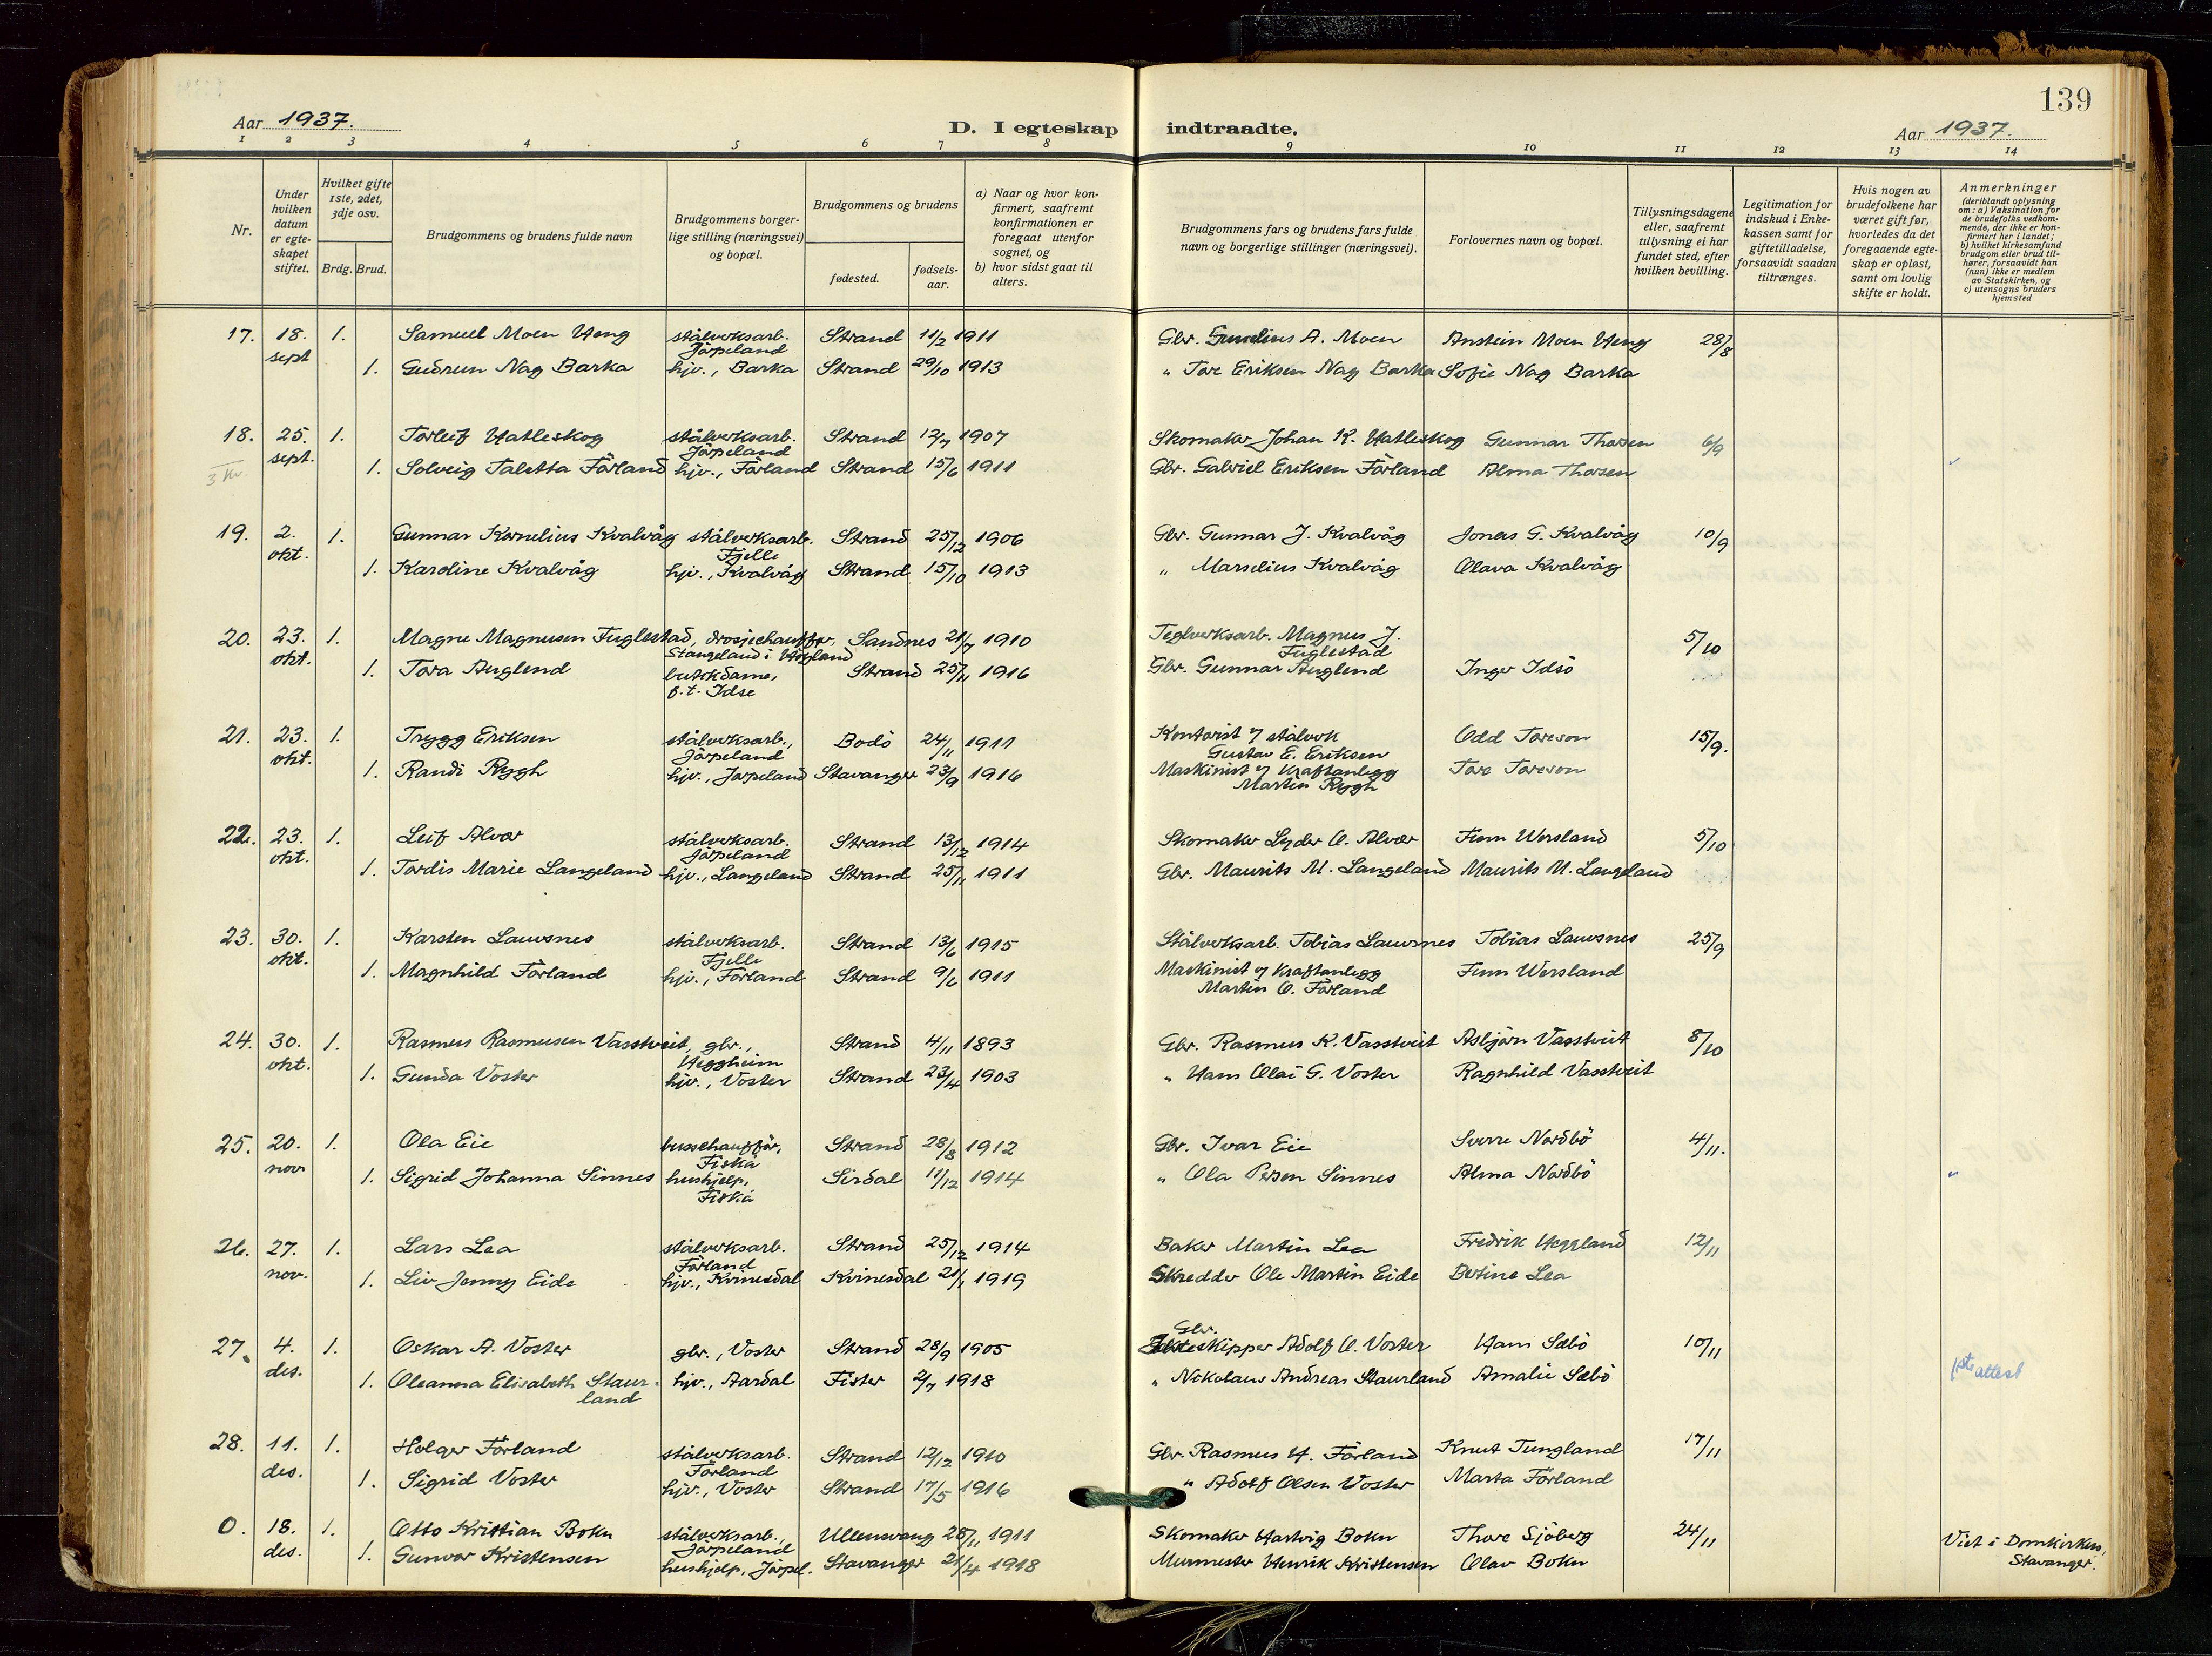 139
Aar 1937.
D. I egteskap indtraadte.
Aar 1937.
1 2 3 4 5 6 7 8 9 10 11 12 13 14
Nr.
Under hvilken datum er egteskapet stiftet.
Hvilket gifte 1ste, 2det, 3dje osv.
Brdg. Brud.
Brudgommens og brudens fulde navn
Brudgommens borgerlige stilling (næringsvei) og bopæl.
Brudgommens og brudens
fødested.
fødselsaar.
a) Naar og hvor konfirmert, saafremt konfirmationen er foregaat utenfor sognet, og
b) hvor sidst gaat til alters.
Brudgommens fars og brudens fars fulde navn og borgerlige stillinger (næringsvei).
Forlovernes navn og bopæl.
Tillysningsdagene eller, saafremt tillysning ei har fundet sted, efter hvilken bevilling.
Legitimation for indskud i Enkekassen samt for giftetilladelse, forsaavidt saadan tiltrænges.
Hvis nogen av brudefolkene har været gift før, hvorledes da det foregaaende egteskap er opløst, samt om lovlig skifte er holdt.
Anmerkninger
(deriblandt oplysning om: a) Vaksination for de brudefolks vedkommende, der ikke er konfirmert her i landet; b) hvilket kirkesamfund brudgom eller brud tilhører, forsaavidt han (hun) ikke er medlem av Statskirken, og c) utensogns bruders hjemsted
17. 18. 1. Samuel Moen Heng stålverksarb. Strand 11/2 1911 Gbr. Gunelius A. Moen Anstein Moen Heng 28/8
sept Jørpeland
1. Gudrun Nag Barka hjv., Barka Strand 29/10 1913 " Tore Eriksen Nag Barka Sofie Nag Barka
18. 25. 1. Torleif Hatleskog stålverksarb. Strand 12/7 1907 Skomaker Johan K. Hatleskog Gunnar Thorsen 6/9
sept. Jørpeland
3 kr. 1. Solveig Taletta Førland hjv., Førland Strand 15/6 1911 Gbr. Gabriel Eriksen Førland Alma Thorsen
19. 2. 1. Gunnar Kornelius Kvalvåg stålverksarb. Strand 25/12 1906 Gbr. Gunnar J. Kvalvåg Jonas G. Kvalvåg 10/9
okt. Fjelle
1. Karoline Kvalvåg hjv., Kvalvåg Strand 15/10 1913 " Marselius Kvalvåg Olava Kvalvåg
20. 23. 1. Magne Magnusen Fuglestad, drosjechauffør, Sandnes 21/7 1910 Teglverksarb. Magnus J. 5/10
okt. Stangeland i Høyland Fuglestad
1. Tora Auglend butikdame, Strand 25/11 1916 Gbr. Gunnar Auglend Inger Idsö
p.t. Idse
21. 23. 1. Trygg Eriksen stålverksarb., Bodö 24/11 1911 Kontorist v/ stålverk Odd Toreson 15/9.
okt. Jørpeland Gustav E. Eriksen
1. Randi Rygh hjv., Jørpeland Stavanger 23/9 1916 Maskinist v/ Kraftanlegg Tore Toreson
Martin Rygh
22. 23. 1. Leif Alvær stålverksarb. Strand 13/12 1914 Skomaker Lyder O. Alvær Finn Wersland 5/10
okt. Jørpeland
1. Tordis Marie Langeland hjv., Langeland Strand 25/11 1911 Gbr. Maurits M. Langeland Maurits M. Langeland
23. 30. 1. Karsten Lauvsnes stålverksarb. Strand 13/6 1915 Stålverksarb. Tobias Lauvsnes Tobias Lauvsnes 25/9
okt. Fjelle
1. Magnhild Førland hjv., Førland Strand 9/6 1911 Maskinist v/ Kraftanlegg Finn Wersland
Martin O. Førland
24. 30. 1. Rasmus Rasmusen Vasstveit, gbr., Strand 4/11 1893 Gbr. Rasmus K. Vasstveit Asbjørn Vasstveit 8/10
okt. Heggheim
1. Gunda Voster hjv., Voster Strand 23/4 1903 " Hans Olai G. Voster Ragnhild Vasstveit
25. 20. 1. Ola Eie busschauffør, Strand 28/8 1912 Gbr. Ivar Eie Sverre Nordbö 4/11.
nov Fiskå
1. Sigrid Johanna Sinnes hushjelp, Sirdal 11/12 1914 " Ola Persen Sinnes Alma Nordbö
Fiskå
26. 27. 1. Lars Lea stålverksarb. Strand 25/12 1914 Baker Martin Lea Fredrik Heggland 12/11
nov. Førland
1. Liv Jenny Eide hjv., Kvinesdal Kvinesdal 21/1 1919 Skredder Ole Martin Eide Bertine Lea
Gbr.
27. 4. 1. Oskar A. Voster gbr., Voster Strand 28/9 1905 Jakteskipper Adolf O. Voster Hans Sæbö 10/11
des.
1. Oleanna Elisabeth Staurland hjv., Aardal Fister 2/7 1918 " Nikolaus Andreas Staurland Amalie Sæbö 1ste attest
28. 11. 1. Holger Førland stålverksarb. Strand 12/12 1910 Gbr. Rasmus H. Førland Knut Tungland 17/11
des. Førland
1. Sigrid Voster hjv., Voster Strand 17/5 1916 " Adolf Olsen Voster Marta Førland
0. 18. 1. Otto Kristian Bokn stålverksarb., Ullensvang 28/11 1911 Skomaker Hartvig Bokn Thore Sjöberg 24/11 Viet i Domkirken,
des. Jørpeland Stavanger.
1. Gunvor Kristensen hushjelp, Jørpel. Stavanger 21/4 1918 Murmester Henrik Kristensen Olav Bokn